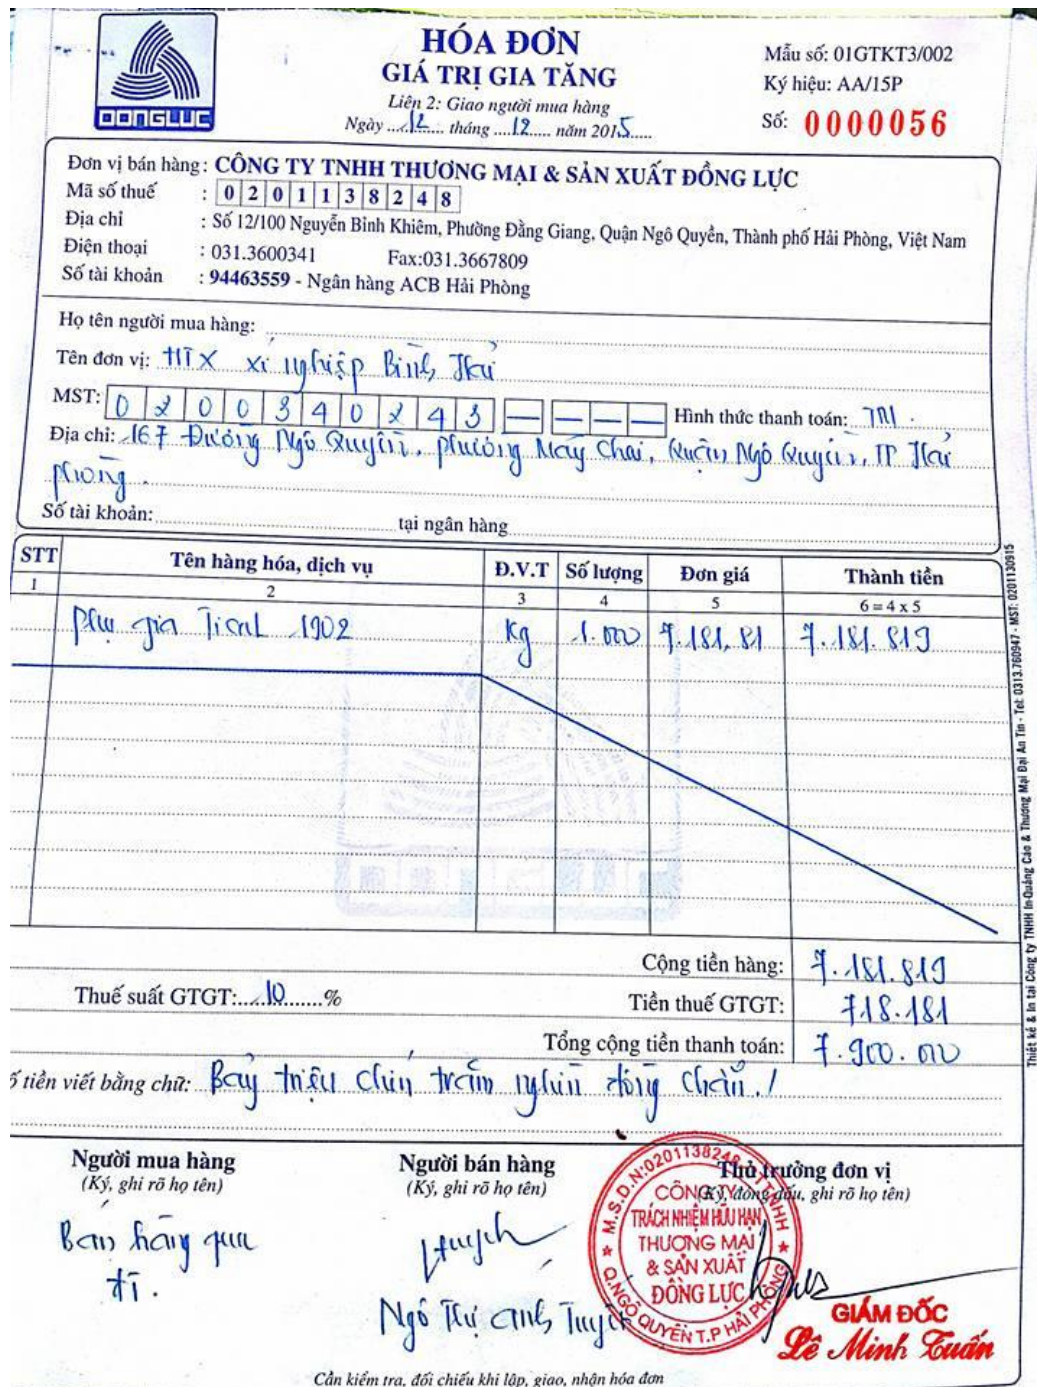 ĐONGLUC
HÓA ĐƠN
GIÁ TRỊ GIA TĂNG
Liên 2: Giao người mua hàng
Ngày 12 tháng 12 năm 2015
Mẫu số: 01GTKT3/002
Ký hiệu: AA/15P
Số: 0000056
Đơn vị bán hàng: CÔNG TY TNHH THƯƠNG MẠI & SẢN XUẤT ĐỒNG LỰC
Mã số thuế : 0201138248
Địa chỉ : Số 12/100 Nguyễn Bỉnh Khiêm, Phường Đằng Giang, Quận Ngô Quyền, Thành phố Hải Phòng, Việt Nam
Điện thoại : 031.3600341 Fax:031.3667809
Số tài khoản : 94463559 - Ngân hàng ACB Hải Phòng
Họ tên người mua hàng:
Tên đơn vị: HTX xí nghiệp Bình Hải
MST: 0200340243 Hình thức thanh toán: TM.
Địa chỉ: 167 Đường Ngô Quyền, phường Máy Chai, Quận Ngô Quyền, TP Hải
phòng.
Số tài khoản: tại ngân hàng
STT Tên hàng hóa, dịch vụ Đ.V.T Số lượng Đơn giá Thành tiền
1 2 3 4 5 6 = 4 x 5
Phụ gia 1902 Kg 1.000 7.181.81 7.181.819
Cộng tiền hàng: 7.181.819
Thuế suất GTGT: 10 % Tiền thuế GTGT: 718.181
Tổng cộng tiền thanh toán: 7.900.000
ố tiền viết bằng chữ: Bảy triệu chín trăm nghìn đồng chẵn./
Người mua hàng Người bán hàng Thủ trưởng đơn vị
(Ký, ghi rõ họ tên) (Ký, ghi rõ họ tên) (Ký, đóng dấu, ghi rõ họ tên)
Bán hàng qua
ĐT.
Ngô Thị Ánh Tuyết
M.S.D.N:0201138248
CÔNG TY
TRÁCH NHIỆM HỮU HẠN
THƯƠNG MẠI
& SẢN XUẤT
ĐỒNG LỰC
Q.NGÔ QUYỀN T.P HẢI PHÒNG
GIÁM ĐỐC
Lê Minh Tuấn
Cần kiểm tra, đối chiếu khi lập, giao, nhận hóa đơn
Thiết kế & In tại Công ty TNHH In-Quảng Cáo & Thương Mại Đại An Tín - Tel: 0313.760947 - MST: 0201130915